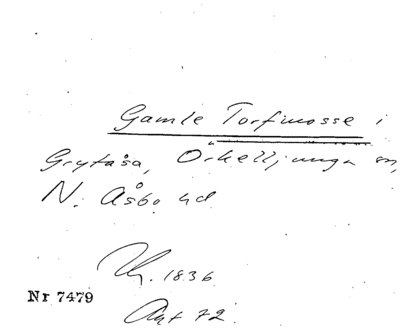 Gamle Torfmosse i
Grytåsa, Örkelljunga sn,
N. Åsbo hd
1836
Nr 7479
Akt 72.